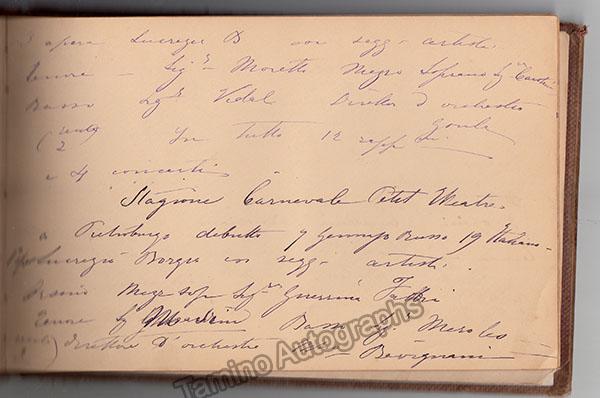 3 opera Lucrezia B con segg. artisti
Tenore – Sigr Moretti Mezzo Soprano Sgra
Basso Sigr Vidal Direttor d'orchestra
Goula
In tutto 12 rapp
e 4 concerti
Stagione Carnevale Petit Theatre
a Pietroburgo debutto 7 Gennajo Russo 19 Italiano
Lucrezia Borgia con segg. artisti.
Orsino Mezzo sop Sigra Guerrina Fabbri
Tenore Sg Basso Sigr Meroles
direttore D'orchestra Bevignani
Tamino Autographs